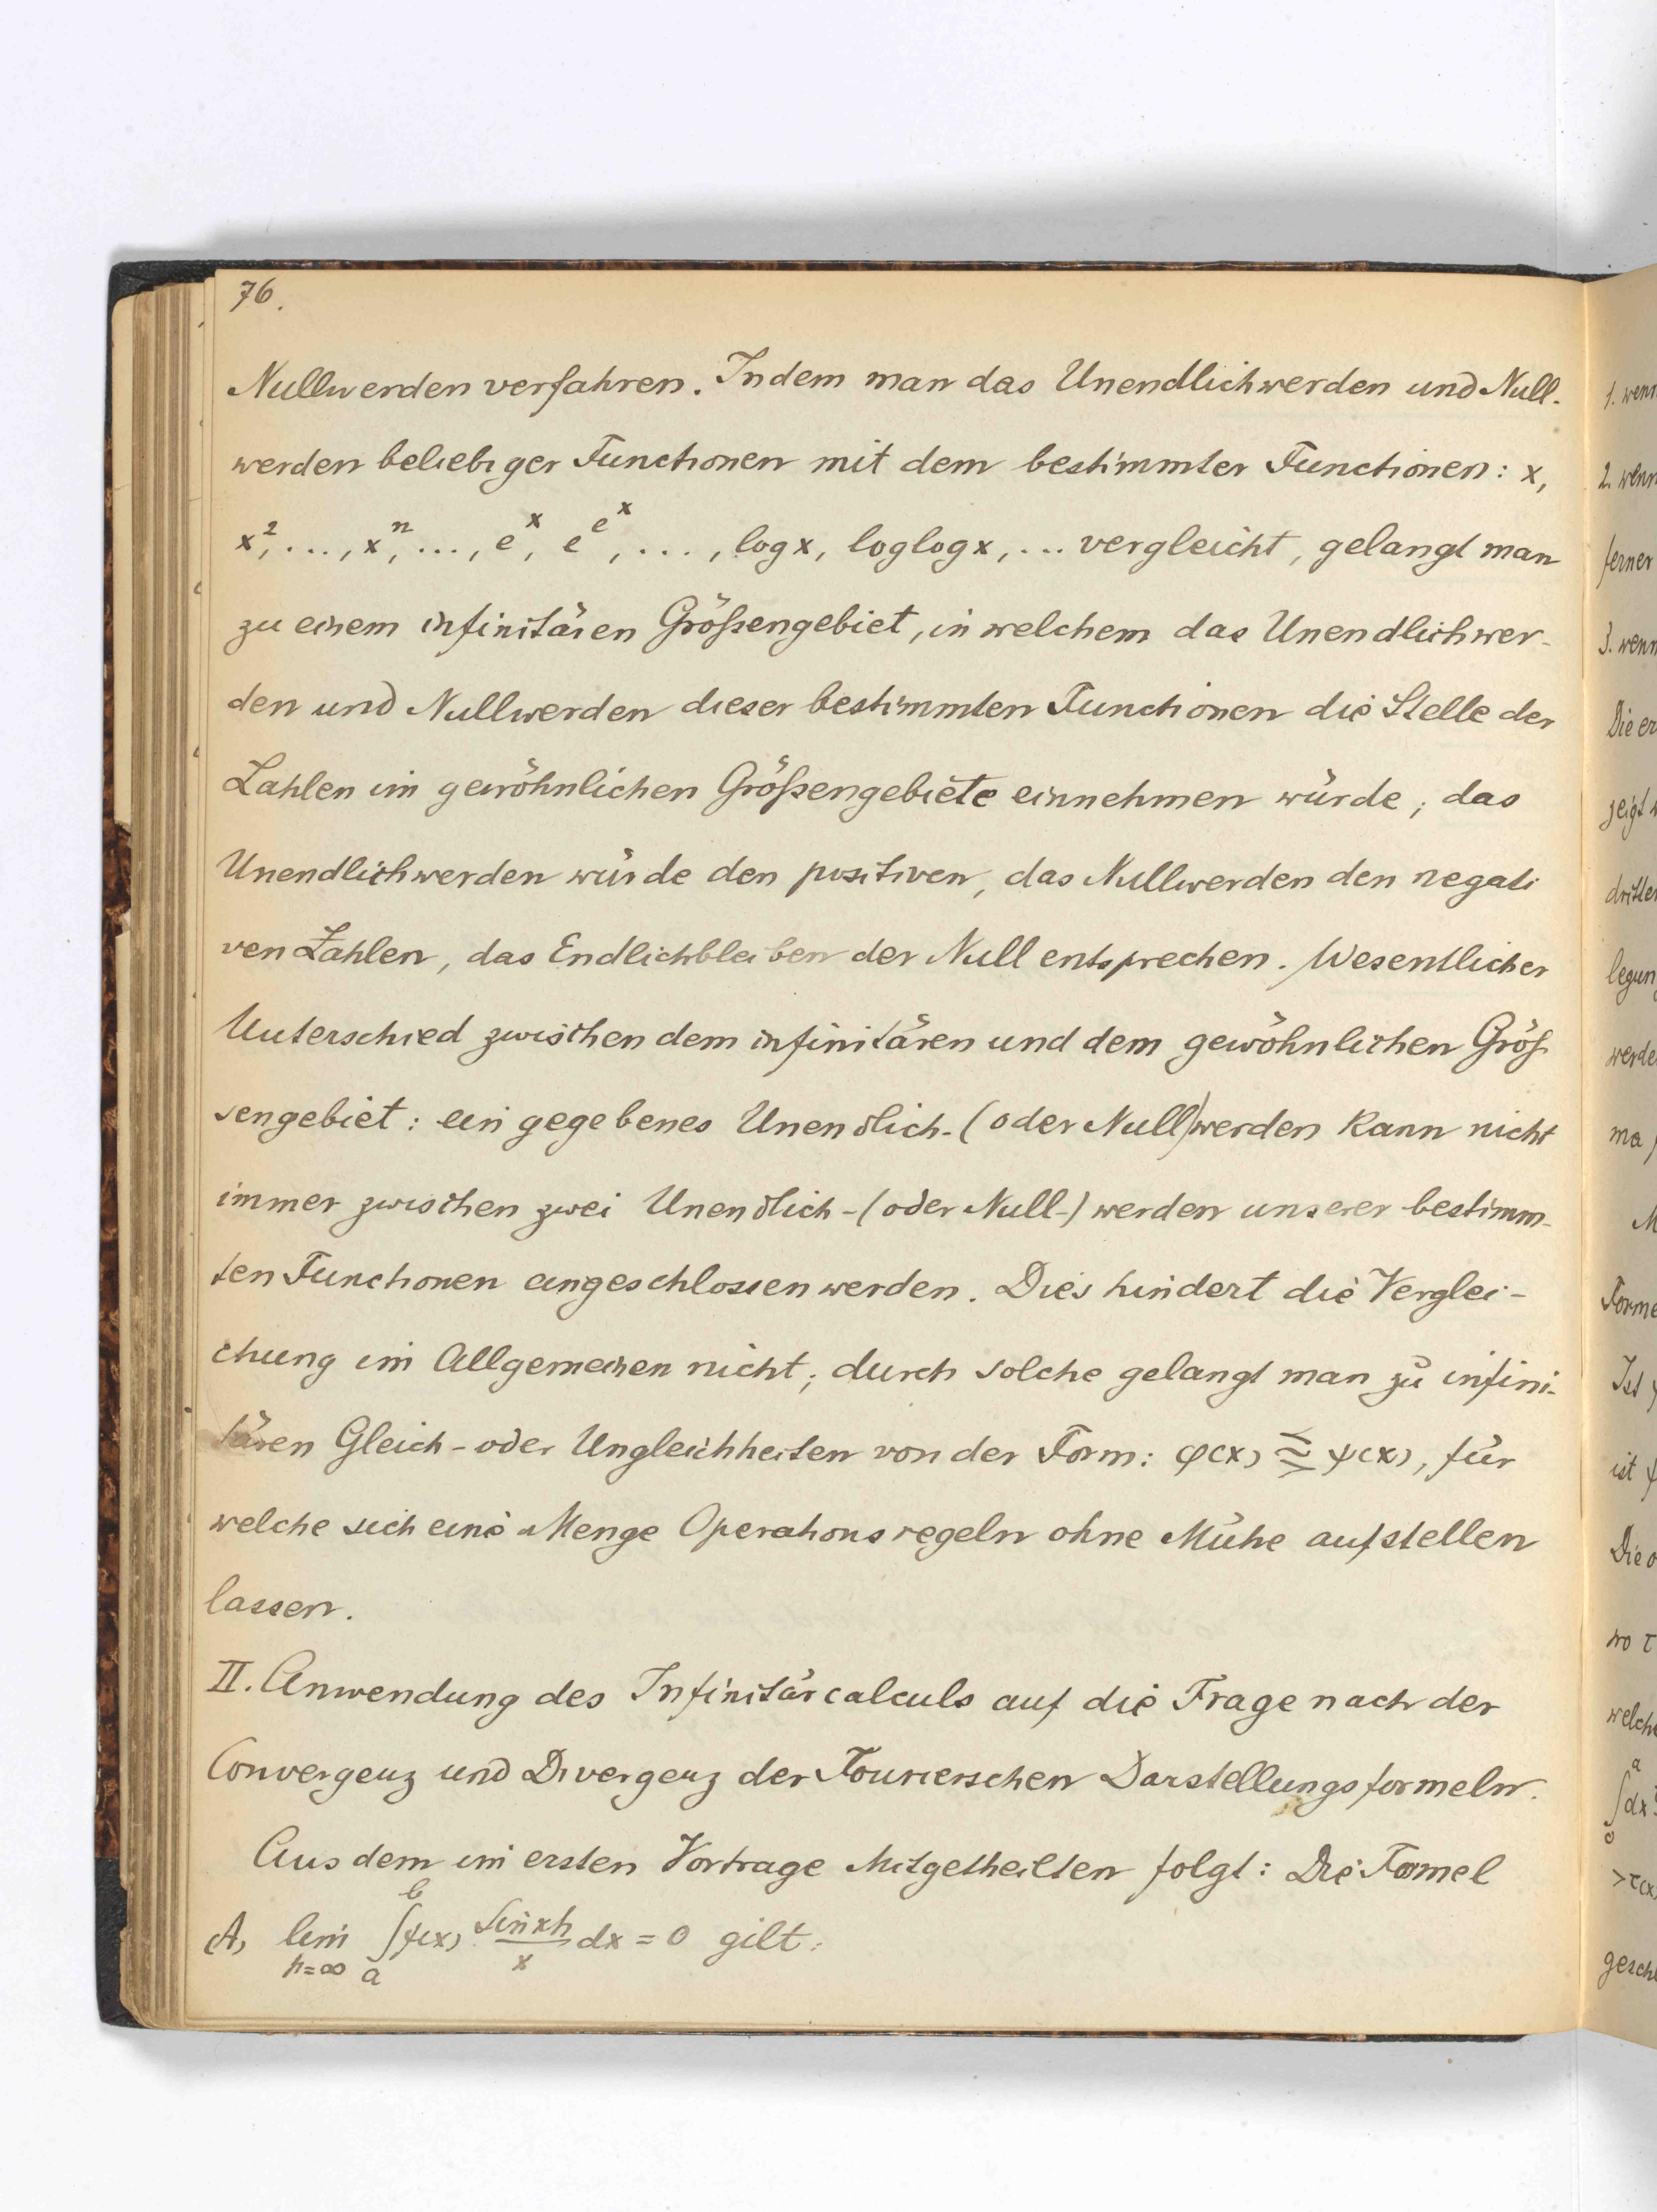 76.
Nullwerden verfahren. Indem man das Unendlichwerden und Null-
werden beliebiger Functionen mit dem bestimmter Functionen: x,
x², ..., xⁿ, ..., e^x, e^{e^x}, ..., log x, loglog x, ... vergleicht, gelangt man
zu einem infinitären Größengebiet, in welchem das Unendlichwer-
den und Nullwerden dieser bestimmten Functionen die Stelle der
Zahlen im gewöhnlichen Größengebiete einnehmen würde; das
Unendlichwerden würde den positiven, das Nullwerden den negati
ven Zahlen, das Endlichbleiben der Null entsprechen. Wesentlicher
Unterschied zwischen dem infinitären und dem gewöhnlichen Größ-
sengebiet: ein gegebenes Unendlich-(oder Null)werden kann nicht
immer zwischen zwei Unendlich-(oder Null-)werden unserer bestimm-
ten Functionen eingeschlossen werden. Dies hindert die Verglei-
chung im Allgemeinen nicht; durch solche gelangt man zu infini-
tären Gleich- oder Ungleichheiten von der Form: φ(x) ⪋ ψ(x), für
welche sich eine Menge Operationsregeln ohne Mühe aufstellen
lassen.
II. Anwendung des Infinitärcalculs auf die Frage nach der
Convergenz und Divergenz der Fourierschen Darstellungsformeln.
Aus dem im ersten Vortrage Mitgetheilten folgt: Die Formel
A) lim_{h=∞} ∫_a^b f(x) sin xh / x dx = 0 gilt:
1. wenn
2. wenn
ferner
3. wenn
Die er
zeigt
dritten
legun
werde
ma
M
Forme
Ist
ist
Die
wo τ
welche
a
∫dx
0
>τ(x)
gesch